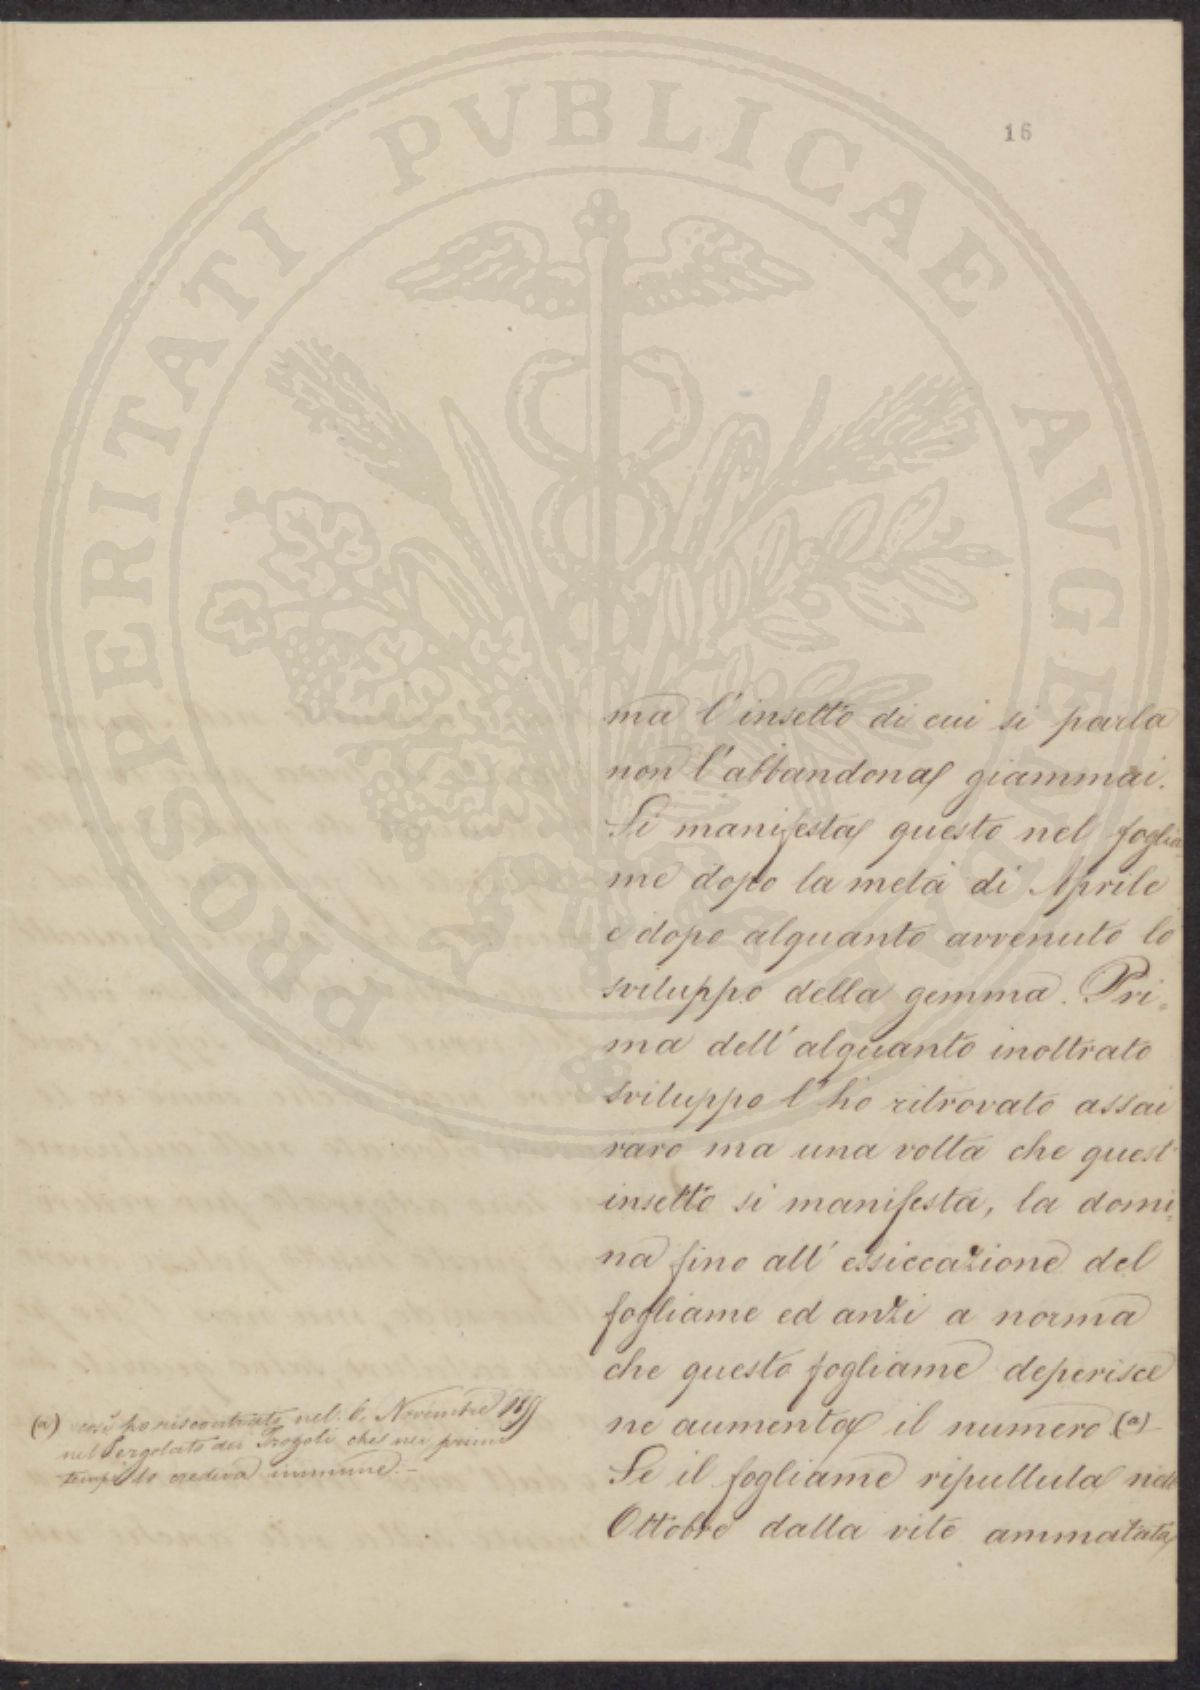 16
PROSPERITATI PVBLICAE AVGENDAE
ma l'insetto di cui si parla
non l'abbandona giammai.
Si manifesta questo nel foglia
me dopo la metà di Aprile
e dopo alquanto avvenuto lo
sviluppo della gemma. Pri=
ma dell'alquanto inoltrato
sviluppo l'ho ritrovato assai
raro ma una volta che quest'
insetto si manifesta, la domi=
na fino all'essiccazione del
fogliame ed anzi a norma
che questo fogliame deperisce
ne aumenta il numero (a)-
Se il fogliame ripullula nell
Ottobre dalla vite ammalata
(a) così ho riscontrato nel 6. Novembre
nel Pergolato dei Trogoli che nei primi
tempi lo credeva immune.-